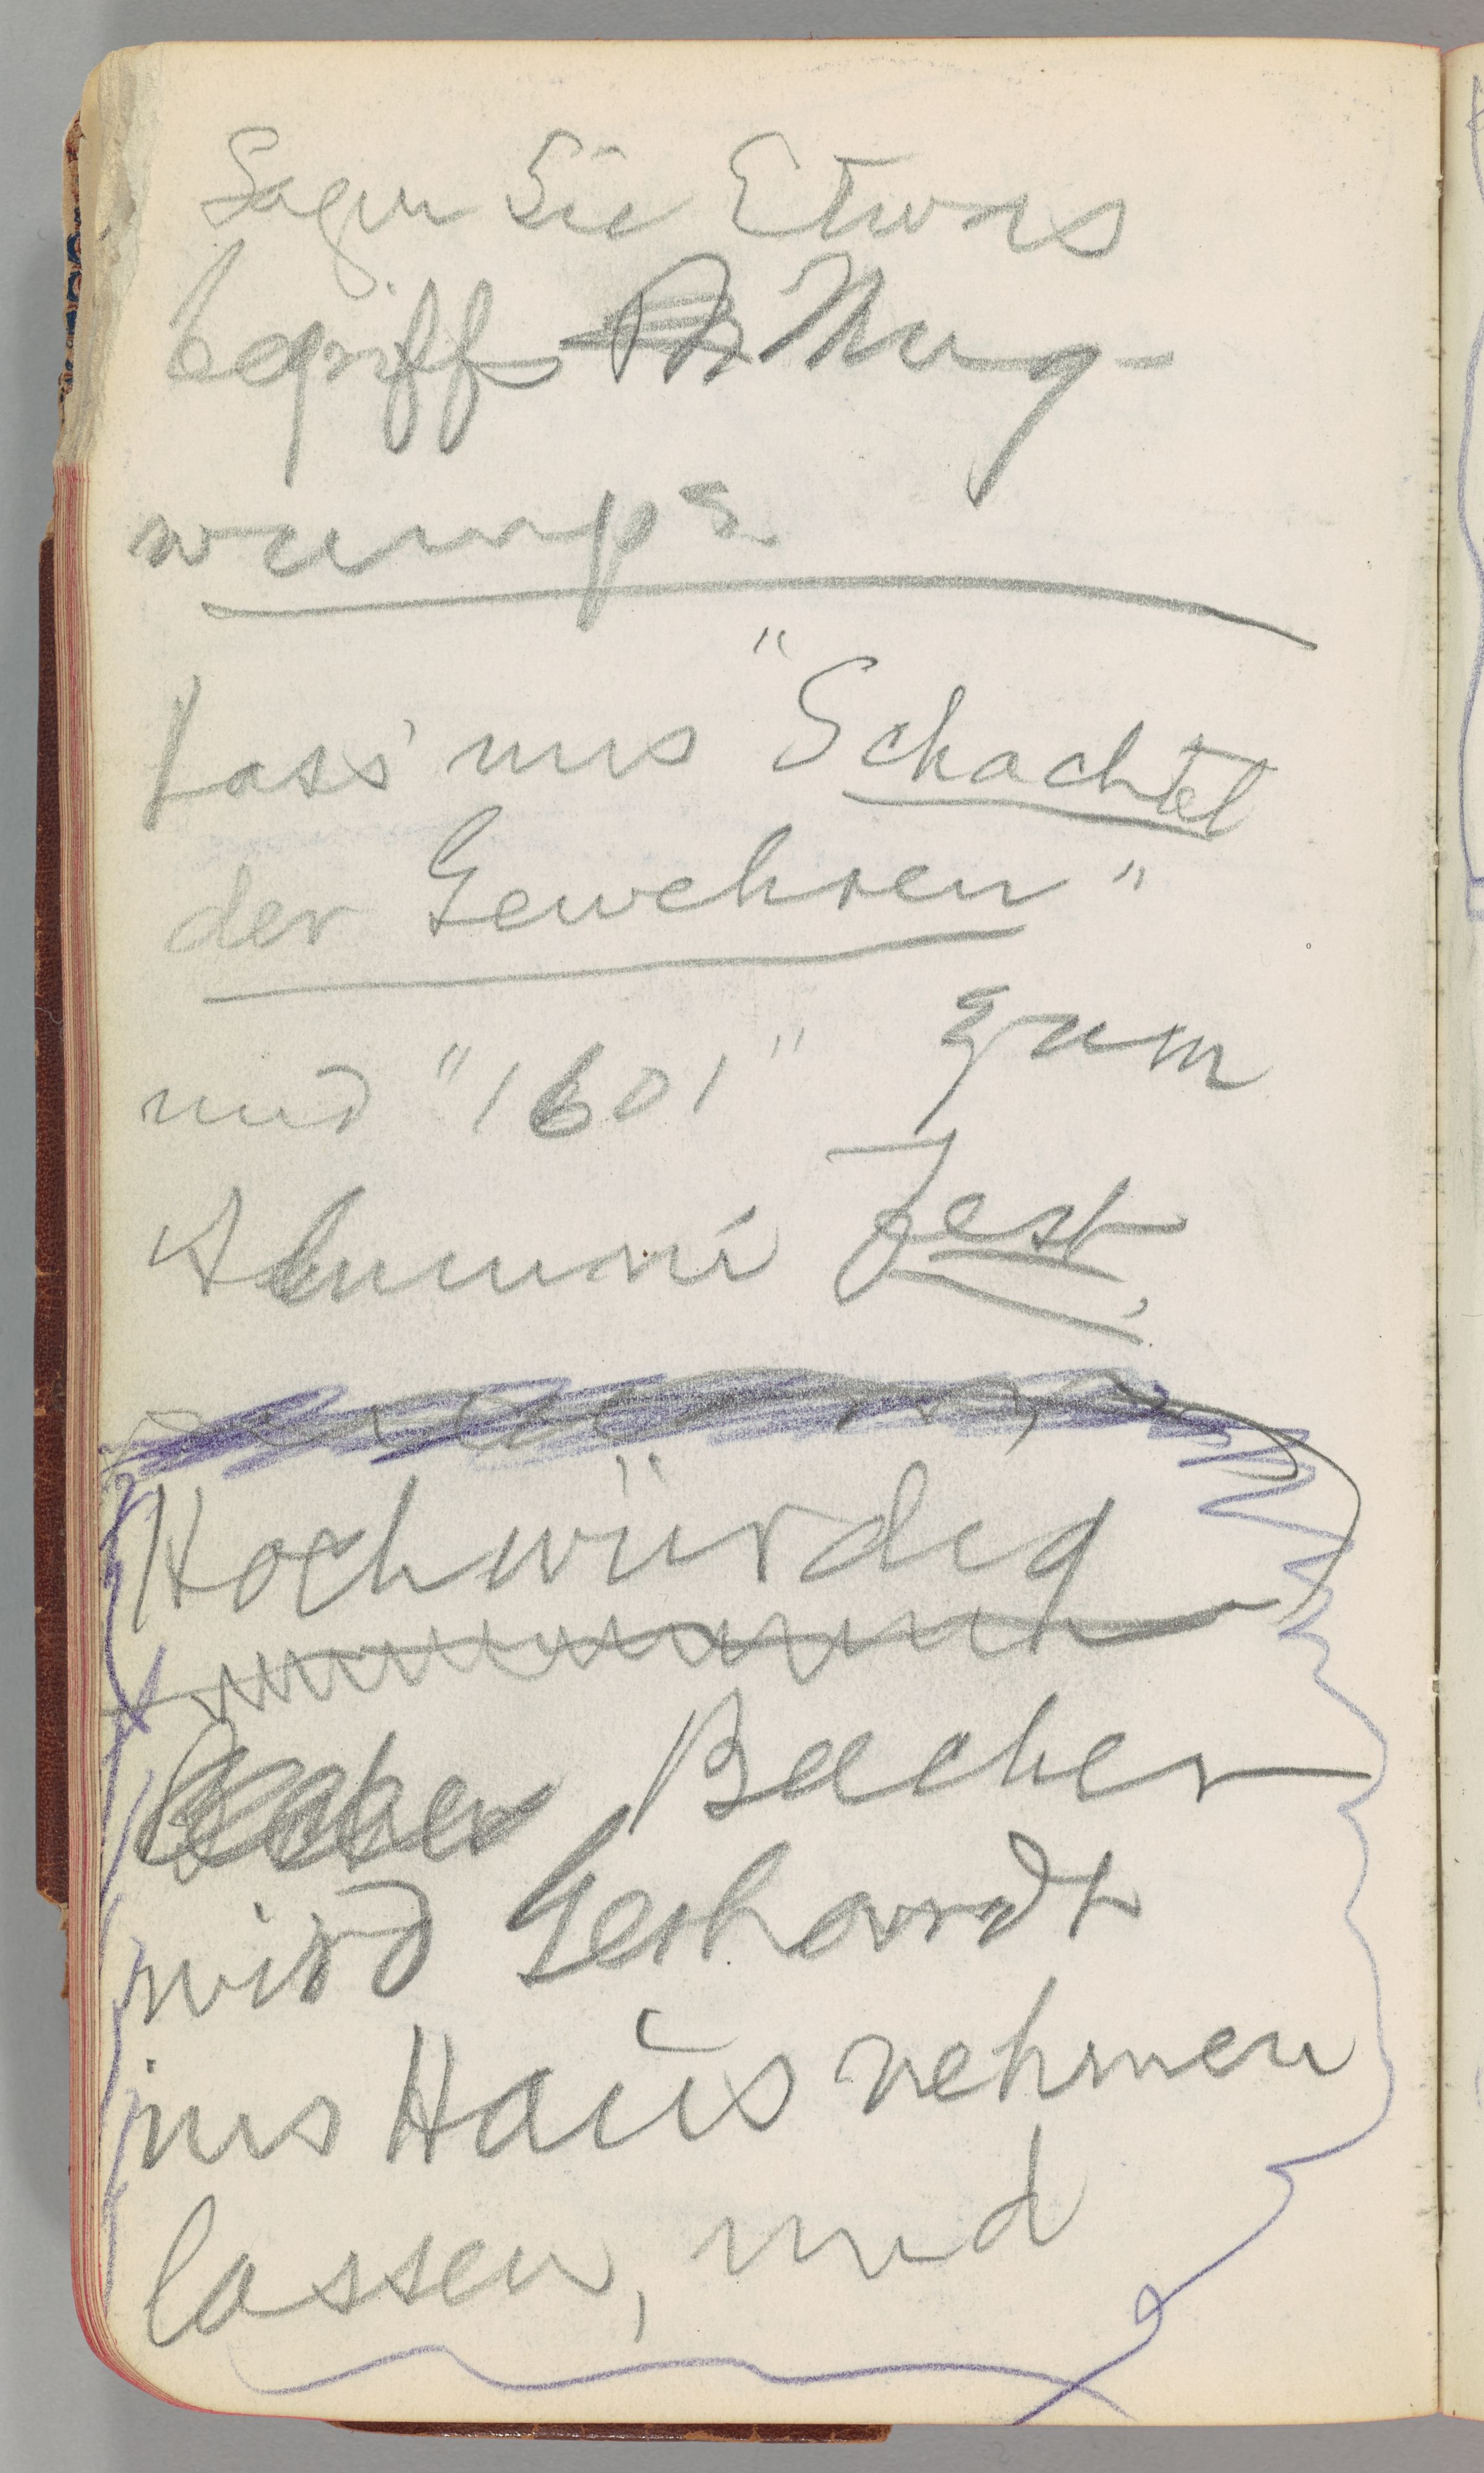 Sagen Sie Etwas
begriffs Mug-
wumps
Lass' uns "Schachtel
der Gewehren"
und "1601" zum
Alumni Fest.
Hochwürdig
Beecher
wird Gerhardt
ins Haus nehmen
lassen, und